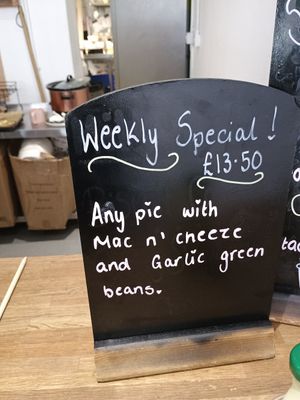 Weekly Special!
£13.50
Any pie with
Mac n' cheeze
and Garlic green
beans.